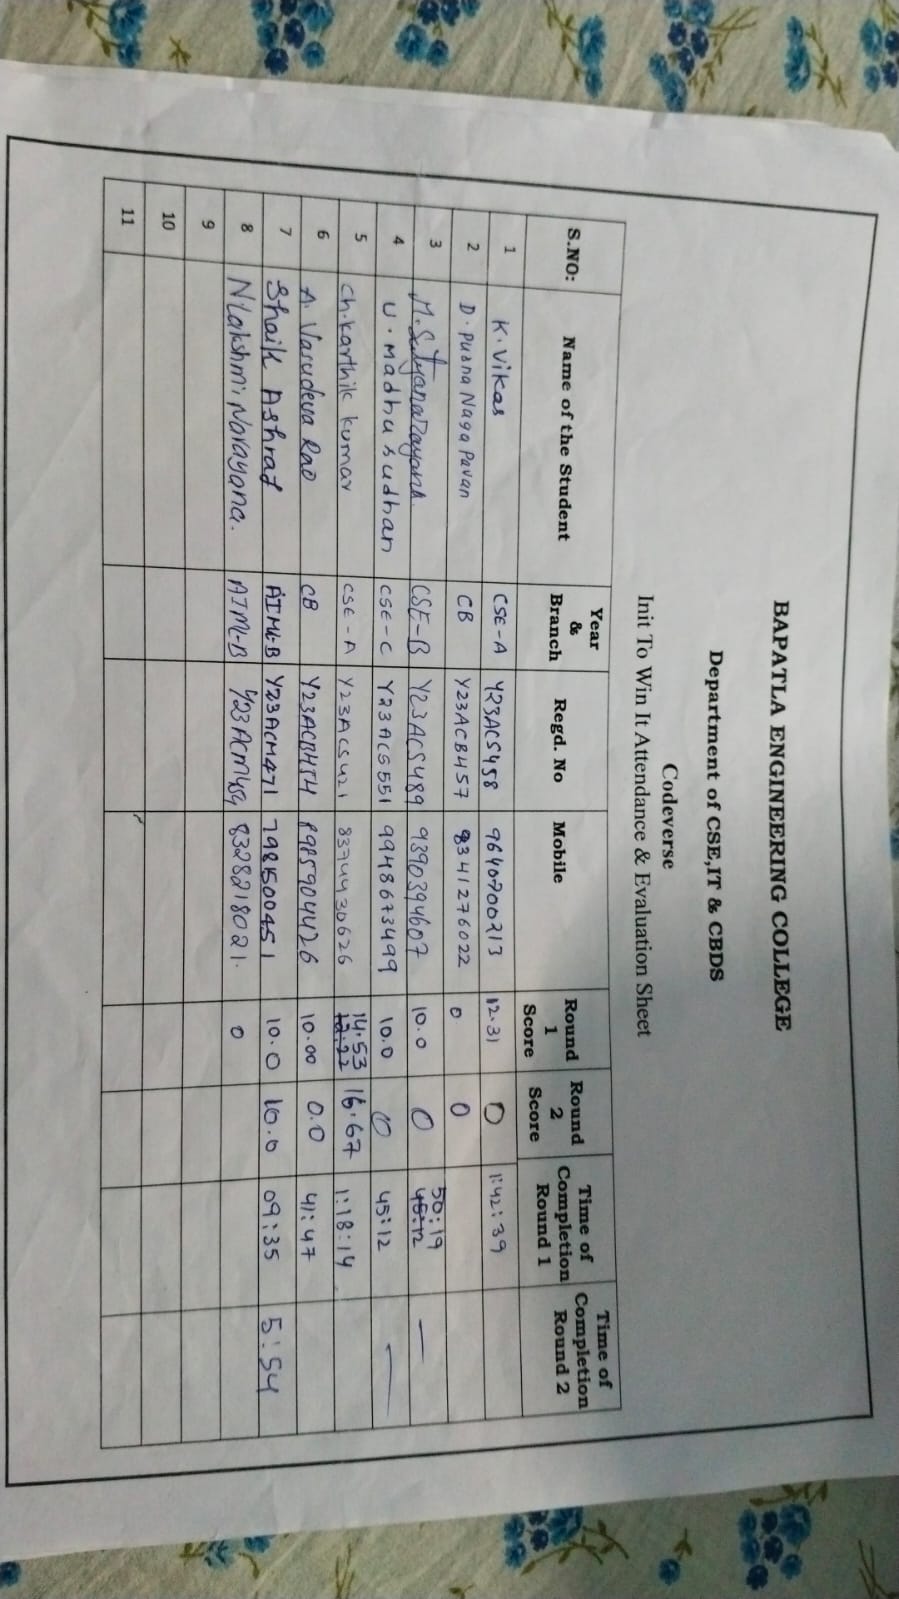 BAPATLA ENGINEERING COLLEGE
Department of CSE,IT & CBDS
Codeverse
Init To Win It Attendance & Evaluation Sheet
S.NO: Name of the Student Year & Branch Regd. No Mobile Round 1 Score Round 2 Score Time of Completion Round 1 Time of Completion Round 2
1 K. Vikas CSE-A Y23ACS458 9640700213 12.31 0 1:42:39
2 D. Purna Naga Pavan CB Y23ACB457 8341276022 0 0
3 M. Satyanarayana. CSE-B Y23ACS489 9390394607 10.0 0 50:19 45:12 —
4 U. Madhu sudhan CSE-C Y23ACS551 9948673499 10.0 0 45:12 —
5 Ch. Karthik kumar CSE-A Y23ACS421 8374430626 14.53 16.67 1:18:14
6 A. Vasudeva Rao CB 8985904426 10.00 0.0 41:47
7 Shaik Ashraf AIML-B Y23ACM471 10.0 10.0 09:35 5:54
8 N Lakshmi Narayana. AIML-B Y23ACM489 8328218021. 0
9
10
11